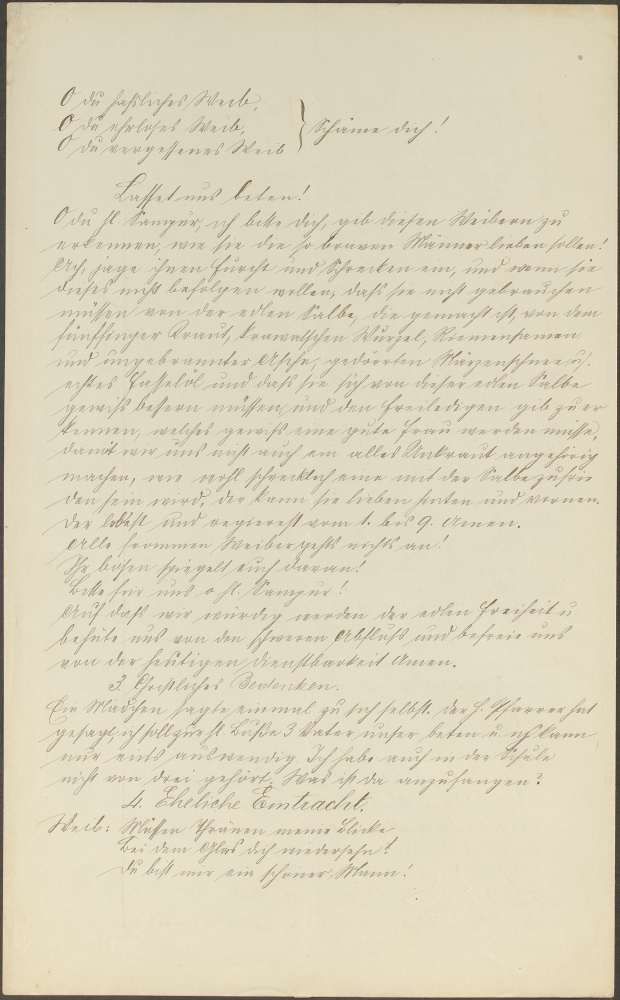 O du häßliches Weib,
O du ehrloses Weib, } Schäme dich!
O du vergessenes Weib
Lasset uns beten!
O du hl. Sampur, ich bitte dich, gib diesen Weibern zu
erkennen, wie sie die so braven Männer lieben sollen!
Ach, jage ihnen Furcht und Schrecken ein, und wenn sie
dieses nicht befolgen wollen, daß sie nicht gebrauchen
müssen von der edlen Salbe, die gemacht ist, von dem
fünffinger Kraut, krowatschen Wurzel, Riemensamen
und ungebrannter Asche, gedörrten Märzenschnee u.
echtes Eselöl und daß sie sich von dieser edlen Salbe
gewiß bessern müssen, und den Freiledigen gib zu er
kennen, welches gewiß eine gute Frau werden müsse,
damit wir uns nicht auch ein altes Unkraut angehörig
machen, wie wohl schrecklich eine mit der Salbe zufrie
den sein wird, der kann sie lieben hinten und vornen.
Der lebest und regierest vom 1. bis 9. Amen.
Alle frommen Weiber gehts nichts an!
Ihr bösen spiegelt euch daran!
Bitte für uns o hl. Sampur!
Auf daß wir würdig werden der edlen Freiheit u
behüte uns von den schweren Abfluß, und befreie uns
von der heutigen Dienstbarkeit Amen.
3. Christliches Bedenken.
Ein Mädchen sagte einmal zu sich selbst. Der H. Pfarrer hat
gesagt, ich soll zur hl. Buße 3 Vater unser beten u. ich kann
nur eins auswendig. Ich habe auch in der Schule
nicht von drei gehört. Was ist da anzufangen?
4. Eheliche Eintracht.
Weib: Müssen Thränen meine Blicke
Bei dem Glas dich niedersehn!
Du bist mir ein schöner Mann!